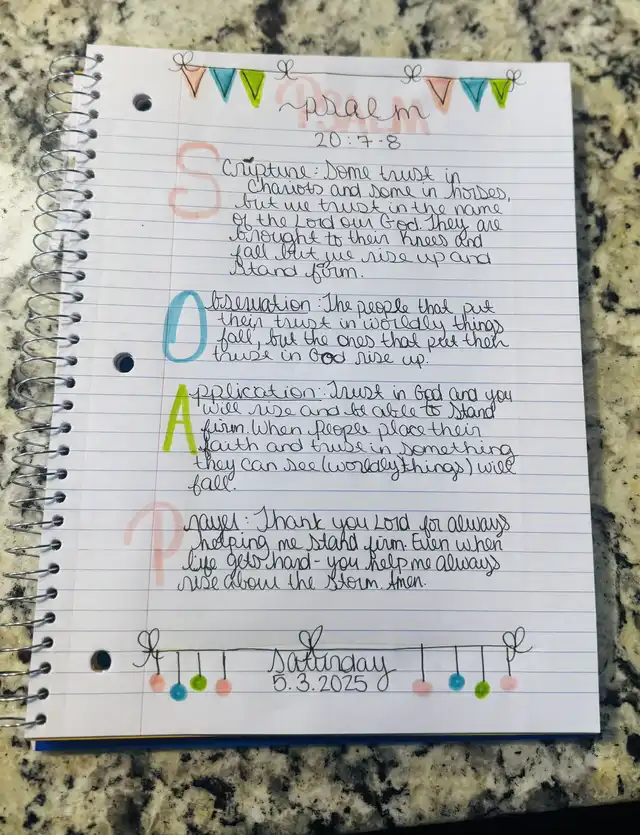 PSALM
~psalm
20:7-8
Scripture: Some trust in
Chariots and some in horses,
but we trust in the name
of the Lord our God. They are
brought to their knees and
fall but we rise up and
stand firm.
Observation: The people that put
their trust in worldly things
fall, but the ones that put their
trust in God rise up.
Application: Trust in God and you
will rise and be able to stand
firm. When people place their
faith and trust in something
they can see (worldly things) will
fall.
Prayer: Thank you Lord for always
helping me stand firm. Even when
life gets hard - you help me always
rise about the storm. Amen.
Saturday
5.3.2025